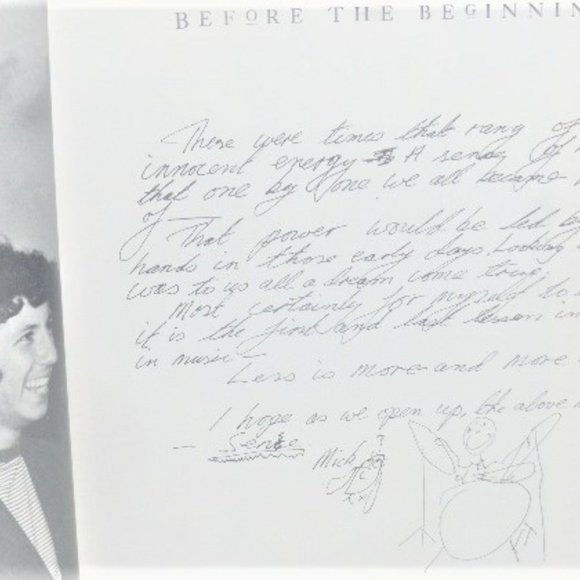 BEFORE THE BEGINNIN
These were times that rang of
innocent energy A sense of
that one by one we all became
of
That power would be led by
hands in those early days. Looking
was to us all a dream come true.
Most certainly for myself to
it is the first and last lesson in
in music
Less is more and more
I hope as we open up, the above
- Sense
Mick